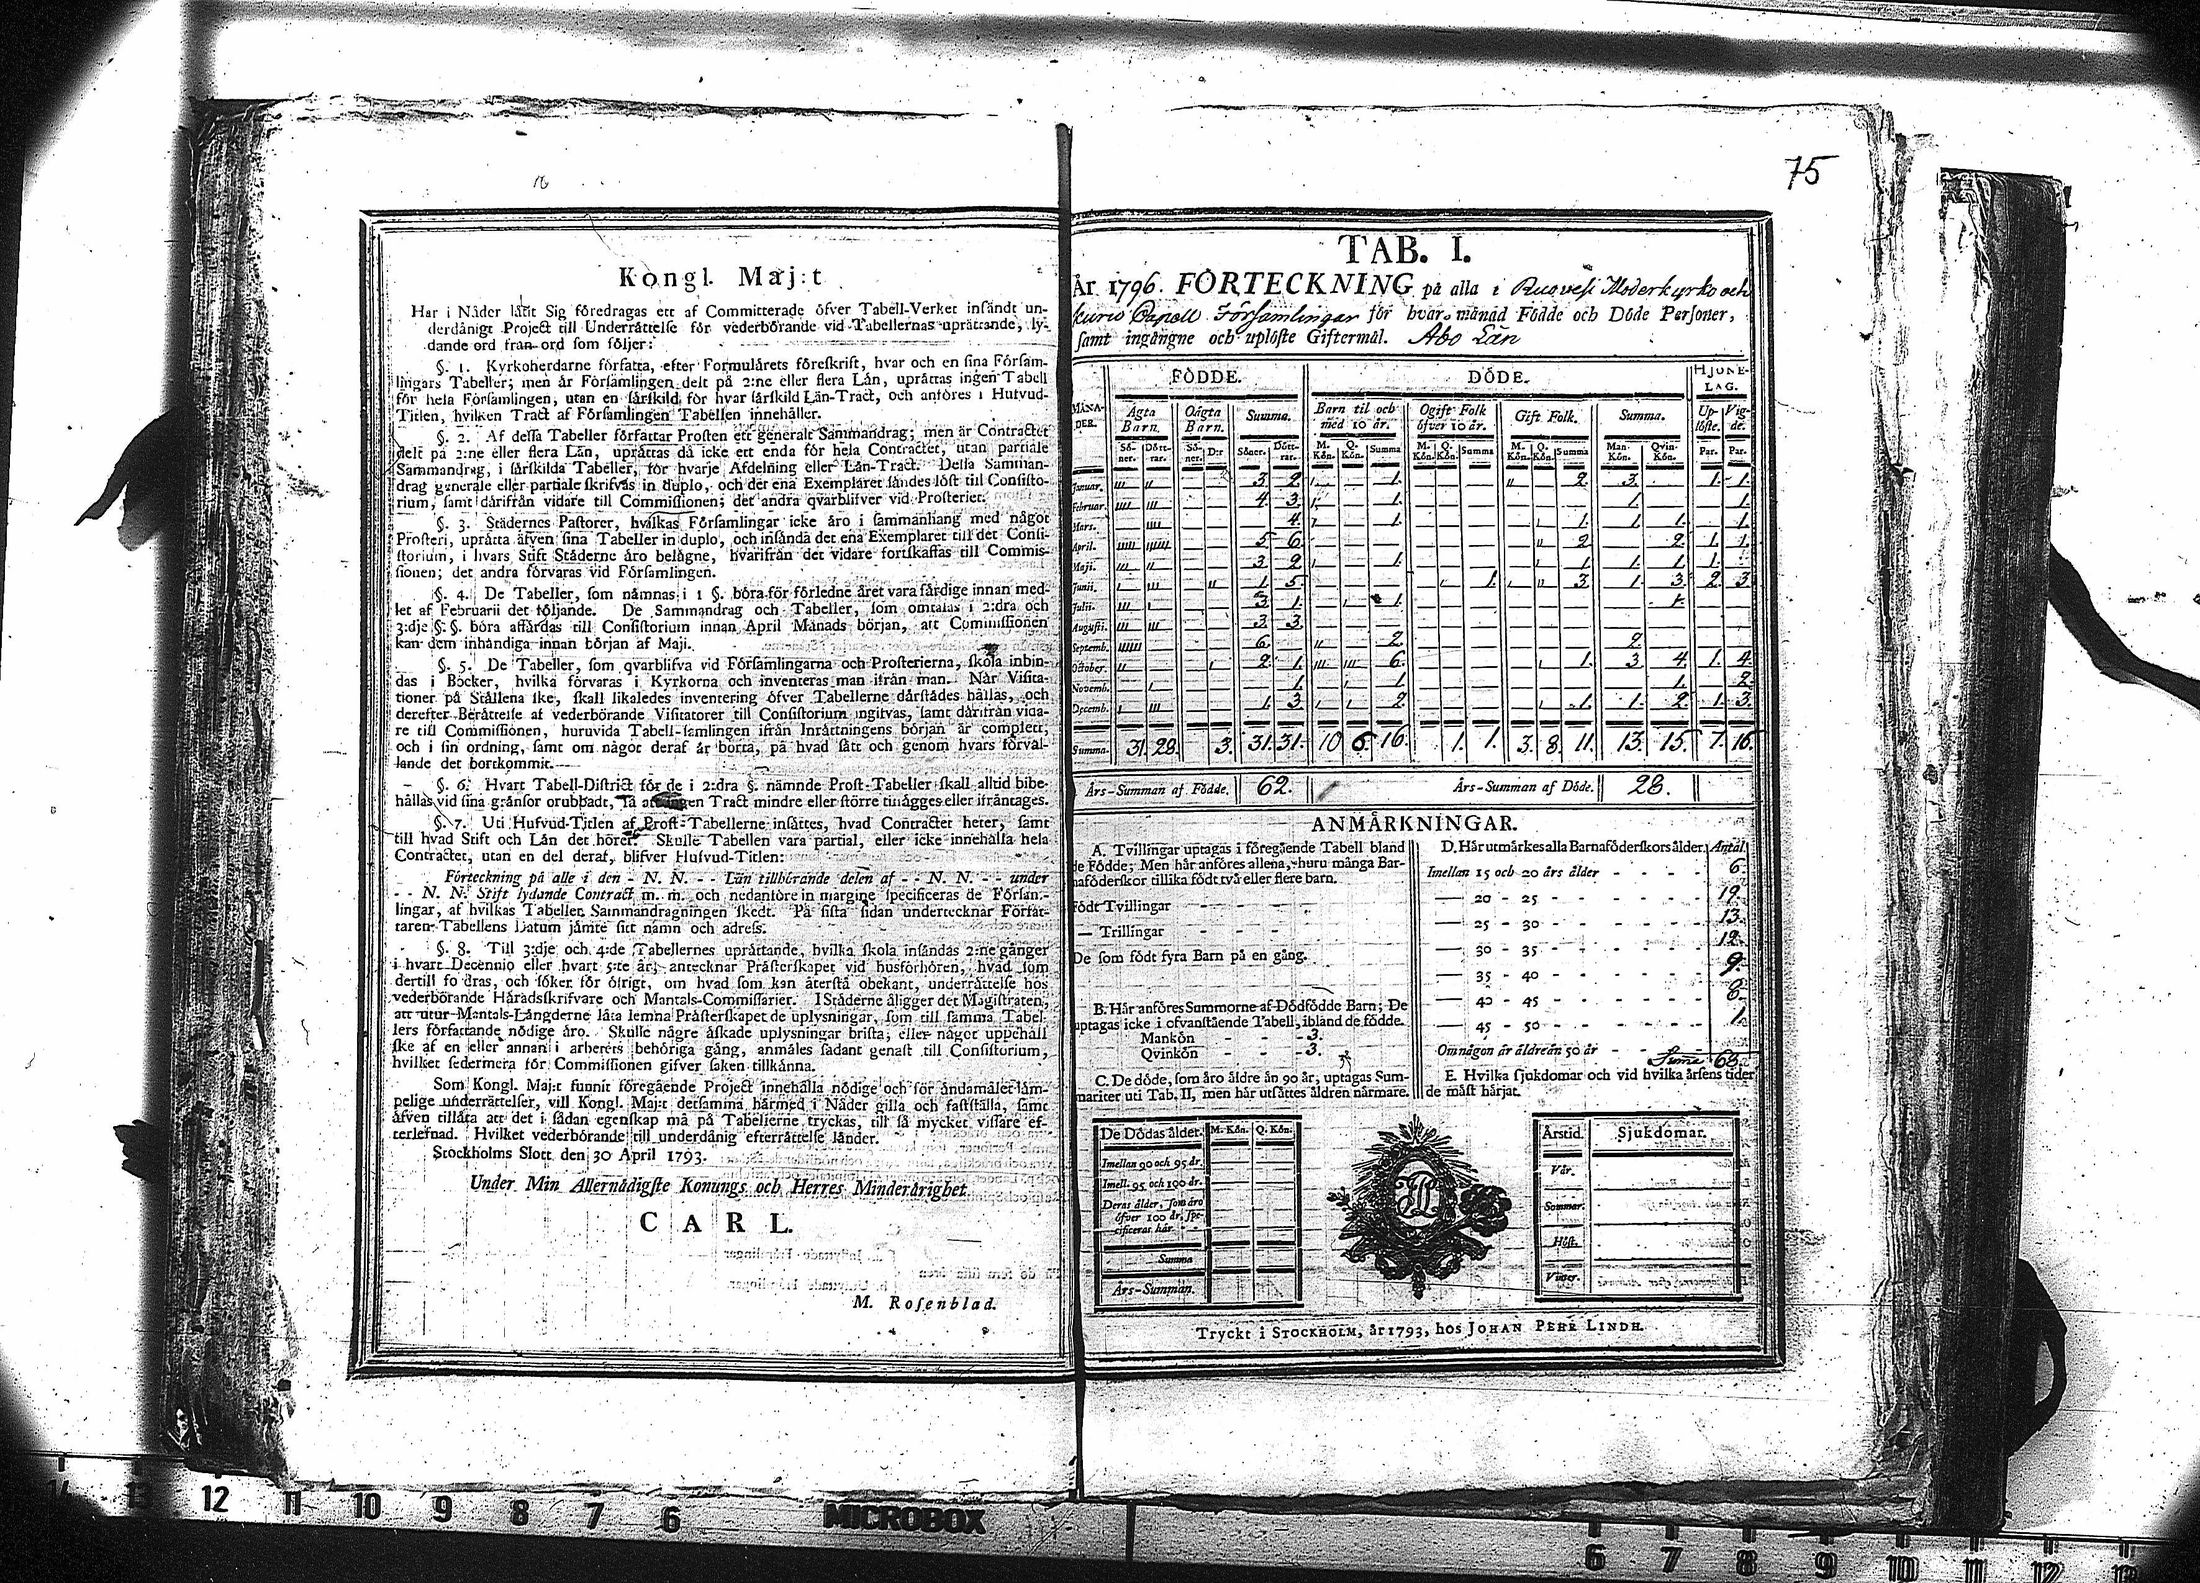 75
Kongl. Maj:t
Har i Nåder låtit Sig föredragas ett af Committerade öfver Tabell-Verket insändt un-
derdånigt Project till Underrättelse för vederbörande vid Tabellernas upråttande, ly-
dande ord från ord som följer:
§. 1. Kyrkoherdarne författa, efter Formulårets föreskrift, hvar och en sina Försam-
lingars Tabeller; men år Församlingen delt på 2:ne eller flera Lån, upråttas ingen Tabell
för hela Församlingen, utan en sårskild för hvar sårskild Lån-Tract, och anföres i Hufvud-
Titlen, hvilken Tract af Församlingen Tabellen innehåller.
§. 2. Af dessa Tabeller författar Prosten ett generalt Sammandrag; men år Contractet
delt på 2:ne eller flera Lån, upråttas då icke ett enda för hela Contractet, utan partiale
Sammandrag, i sårskilda Tabeller, för hvarje Afdelning eller Lån-Tract. Dessa Samman-
drag generale eller partiale skrifvas in duplo, och det ena Exemplaret såndes löst till Consisto-
rium, samt dårifrån vidare till Commissionen; det andra qvarblifver vid Prosteriet.
§. 3. Städernes Pastorer, hvilkas Församlingar icke åro i sammanhang med något
Prosteri, upråtta åfven sina Tabeller in duplo, och insånda det ena Exemplaret till det Consi-
storium, i hvars Stift Ståderne åro belågne, hvarifrån det vidare fortskaffas till Commis-
sionen; det andra förvaras vid Församlingen.
§. 4. De Tabeller, som nåmnas i 1 §. böra för förledne året vara fårdige innan med-
let af Februarii det följande. De Sammandrag och Tabeller, som omtalas i 2:dra och
3:dje §. §. böra affårdas till Consistorium innan April Månads början, att Commissionen
kan dem inhåndiga innan början af Maji.
§. 5. De Tabeller, som qvarblifva vid Församlingarna och Prosterierna, skola inbin-
das i Böcker, hvilka förvaras i Kyrkorna och inventeras man ifrån man. Når Visita-
tioner på Stållena ske, skall likaledes inventering öfver Tabellerne dårstådes hållas, och
derefter Beråttelse af vederbörande Visitatorer till Consistorium ingifvas, samt dårifrån vida-
re till Commissionen, huruvida Tabell-samlingen ifrån Inråttningens början år complett,
och i sin ordning, samt om något deraf år borta, på hvad sått och genom hvars förvål-
lande det bortkommit.
§. 6. Hvart Tabell-District för de i 2:dra §. nämnde Prost-Tabeller skall alltid bibe-
hållas vid sina grånsor orubbadt, Tract mindre eller större tillågges eller ifråntages.
§. 7. Uti Hufvud-Titlen af Prost-Tabellerne insåttes, hvad Contractet heter, samt
till hvad Stift och Lån det hörer. Skulle Tabellen vara partial, eller icke innehålla hela
Contractet, utan en del deraf, blifver Hufvud-Titlen:
Förteckning på alle i den - N. N. - - Län tillhörande delen af - - N. N. - - under
- - N. N. Stift lydande Contract m. m. och nedanföre in margine specificeras de Försam-
lingar, af hvilkas Tabeller Sammandragningen skedt. På sista sidan undertecknar Förfat-
taren Tabellens Datum jåmte sitt namn och adress.
§. 8. Till 3:dje och 4:de Tabellernes upråttande, hvilka skola insåndas 2:ne gånger
i hvart Decennio eller hvart 5:te år, antecknar Pråsterskapet vid husförhören, hvad som
dertill fodras, och söker för öfrigt, om hvad som kan återstå obekant, underråttelse hos
vederbörande Håradsskrifvare och Mantals-Commissarier. I Ståderne åligger det Magistraten,
att utur Mantals-Långderne låta lemna Pråsterskapet de uplysningar, som till samma Tabel-
lers författande nödige åro. Skulle någre åskade uplysningar brista, eller något uppehåll
ske af en eller annan i arbetets behöriga gång, anmåles sådant genast till Consistorium,
hvilket sedermera för Commissionen gifver saken tillkånna.
Som Kongl. Maj:t funnit föregående Project innehålla nödige och för åndamålet låm-
pelige underråttelser, vill Kongl. Maj:t detsamma hårmed i Nåder gilla och faststålla, samt
åfven tillåta att det i sådan egenskap må på Tabellerne tryckas, till så mycket vissare ef-
terlefnad. Hvilket vederbörande till underdånig efterråttelse lånder.
Stockholms Slott den 30 April 1793.
Under Min Allernådigste Konungs och Herres Minderårighet
CARL.
M. Rosenblad.
TAB. I.
År 1796. FÖRTECKNING på alla i Ruovesi Moderkyrko och
Kuru Capell Församlingar för hvar månad Födde och Döde Personer,
samt ingångne och uplöste Giftermål. Åbo Län
FÖDDE. DÖDE. HJONE-LAG.
MÅNA-DER. Ågta Barn. Oågta Barn. Summa. Barn til och med 10 år. Ogift Folk öfver 10 år. Gift Folk. Summa. Up-löste. Vig-de.
Sö-ner. Dött-rar. Sö-ner. D:r Söner. Dött-rar. M. Kön. Q. Kön. Summa M. Kön. Q. Kön. Summa M. Kön. Q. Kön. Summa Man-Kön. Qvin-Kön. Par. Par.
Januar. 3. 2. 1. 2. 3. 1. 1.
Februar. 4. 3. 1. 1. 1.
Mars. 4. 1. 1. 1. 1. 1.
April. 5. 6. 2. 2. 1. 1.
Maji. 3. 2. 1. 1. 1. 1. 1.
Junii. 1. 5. 1. 3. 1. 3. 2. 3.
Julii. 3. 1. 1. 1.
Augusti. 3. 3.
Septemb. 6. 2. 2.
October. 2. 1. 6. 1. 3. 4. 1. 4.
Novemb. 1. 1. 1. 2.
Decemb. 1. 3. 2. 1. 1. 2. 1. 3.
Summa. 31. 28. 3. 31. 31. 10 6. 16. 1. 1. 3. 8. 11. 13. 15. 7. 16.
Års-Summan af Födde. 62. Års-Summan af Döde. 28.
ANMÅRKNINGAR.
A. Tvillingar uptagas i föregående Tabell bland
de Födde; Men hår anföres allena, huru många Bar-
naföderskor tillika födt två eller flere barn.
Födt Tvillingar - - - -
— Trillingar - - -
De som födt fyra Barn på en gång.
B. Hår anföres Summorne af Dödfödde Barn; De
uptagas icke i ofvanstående Tabell, ibland de födde.
Mankön - - - 3.
Qvinkön - - - 3.
C. De döde, som åro åldre ån 90 år, uptagas Sum-
mariter uti Tab. II, men hår utsåttes åldren nårmare.
De Dödas ålder. M. Kön. Q. Kön.
Imellan 90 och 95 år.
Imell. 95 och 100 år.
Deras ålder, som åro
öfver 100 år, spe-
cificeras hår.
Summa
Års-Summan.
D. Hår utmårkes alla Barnaföderskors ålder. Antal
Imellan 15 och 20 års ålder - - - - 6.
— 20 - 25 - - - - - - 19.
— 25 - 30 - - - - - - 13.
— 30 - 35 - - - - - - 12.
— 35 - 40 - - - - - - 9.
— 40 - 45 - - - - - -
— 45 - 50 - - - - - - 1.
Om någon år åldre ån 50 år - - - -
Summa
E. Hvilka sjukdomar och vid hvilka årsens tider
de måst hårjat.
Årstid. Sjukdomar.
Vår.
Sommar.
Höst.
Vinter.
Tryckt i STOCKHOLM, år 1793, hos JOHAN PEHR LINDH.
12 11 10 9 8 7 6 MICROBOX 6 7 8 9 10 11 12 13